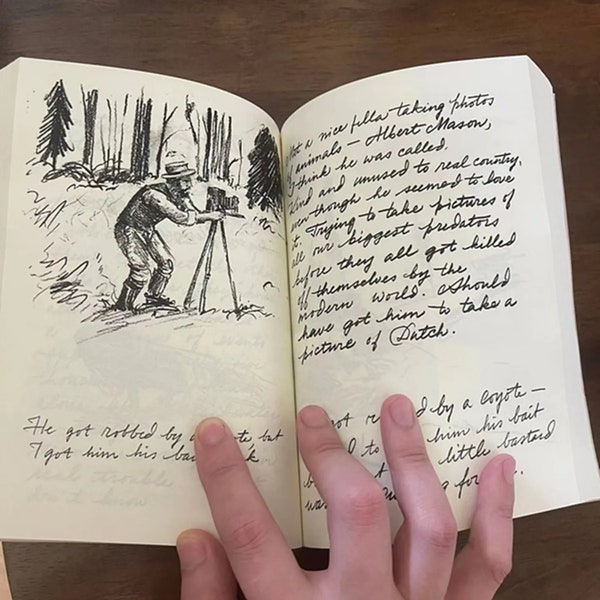 He got robbed by a te but
I got him his ba k
t a nice fella taking photos
animals — Albert Mason,
I think he was called.
ind and unused to real country,
even though he seemed to love
it. Trying to take pictures of
all our biggest predators
before they all got killed
off themselves by the
modern world. Should
have got him to take a
picture of Dutch.
ot d by a coyote —
d to him his bait
b t little bastard
was g for .